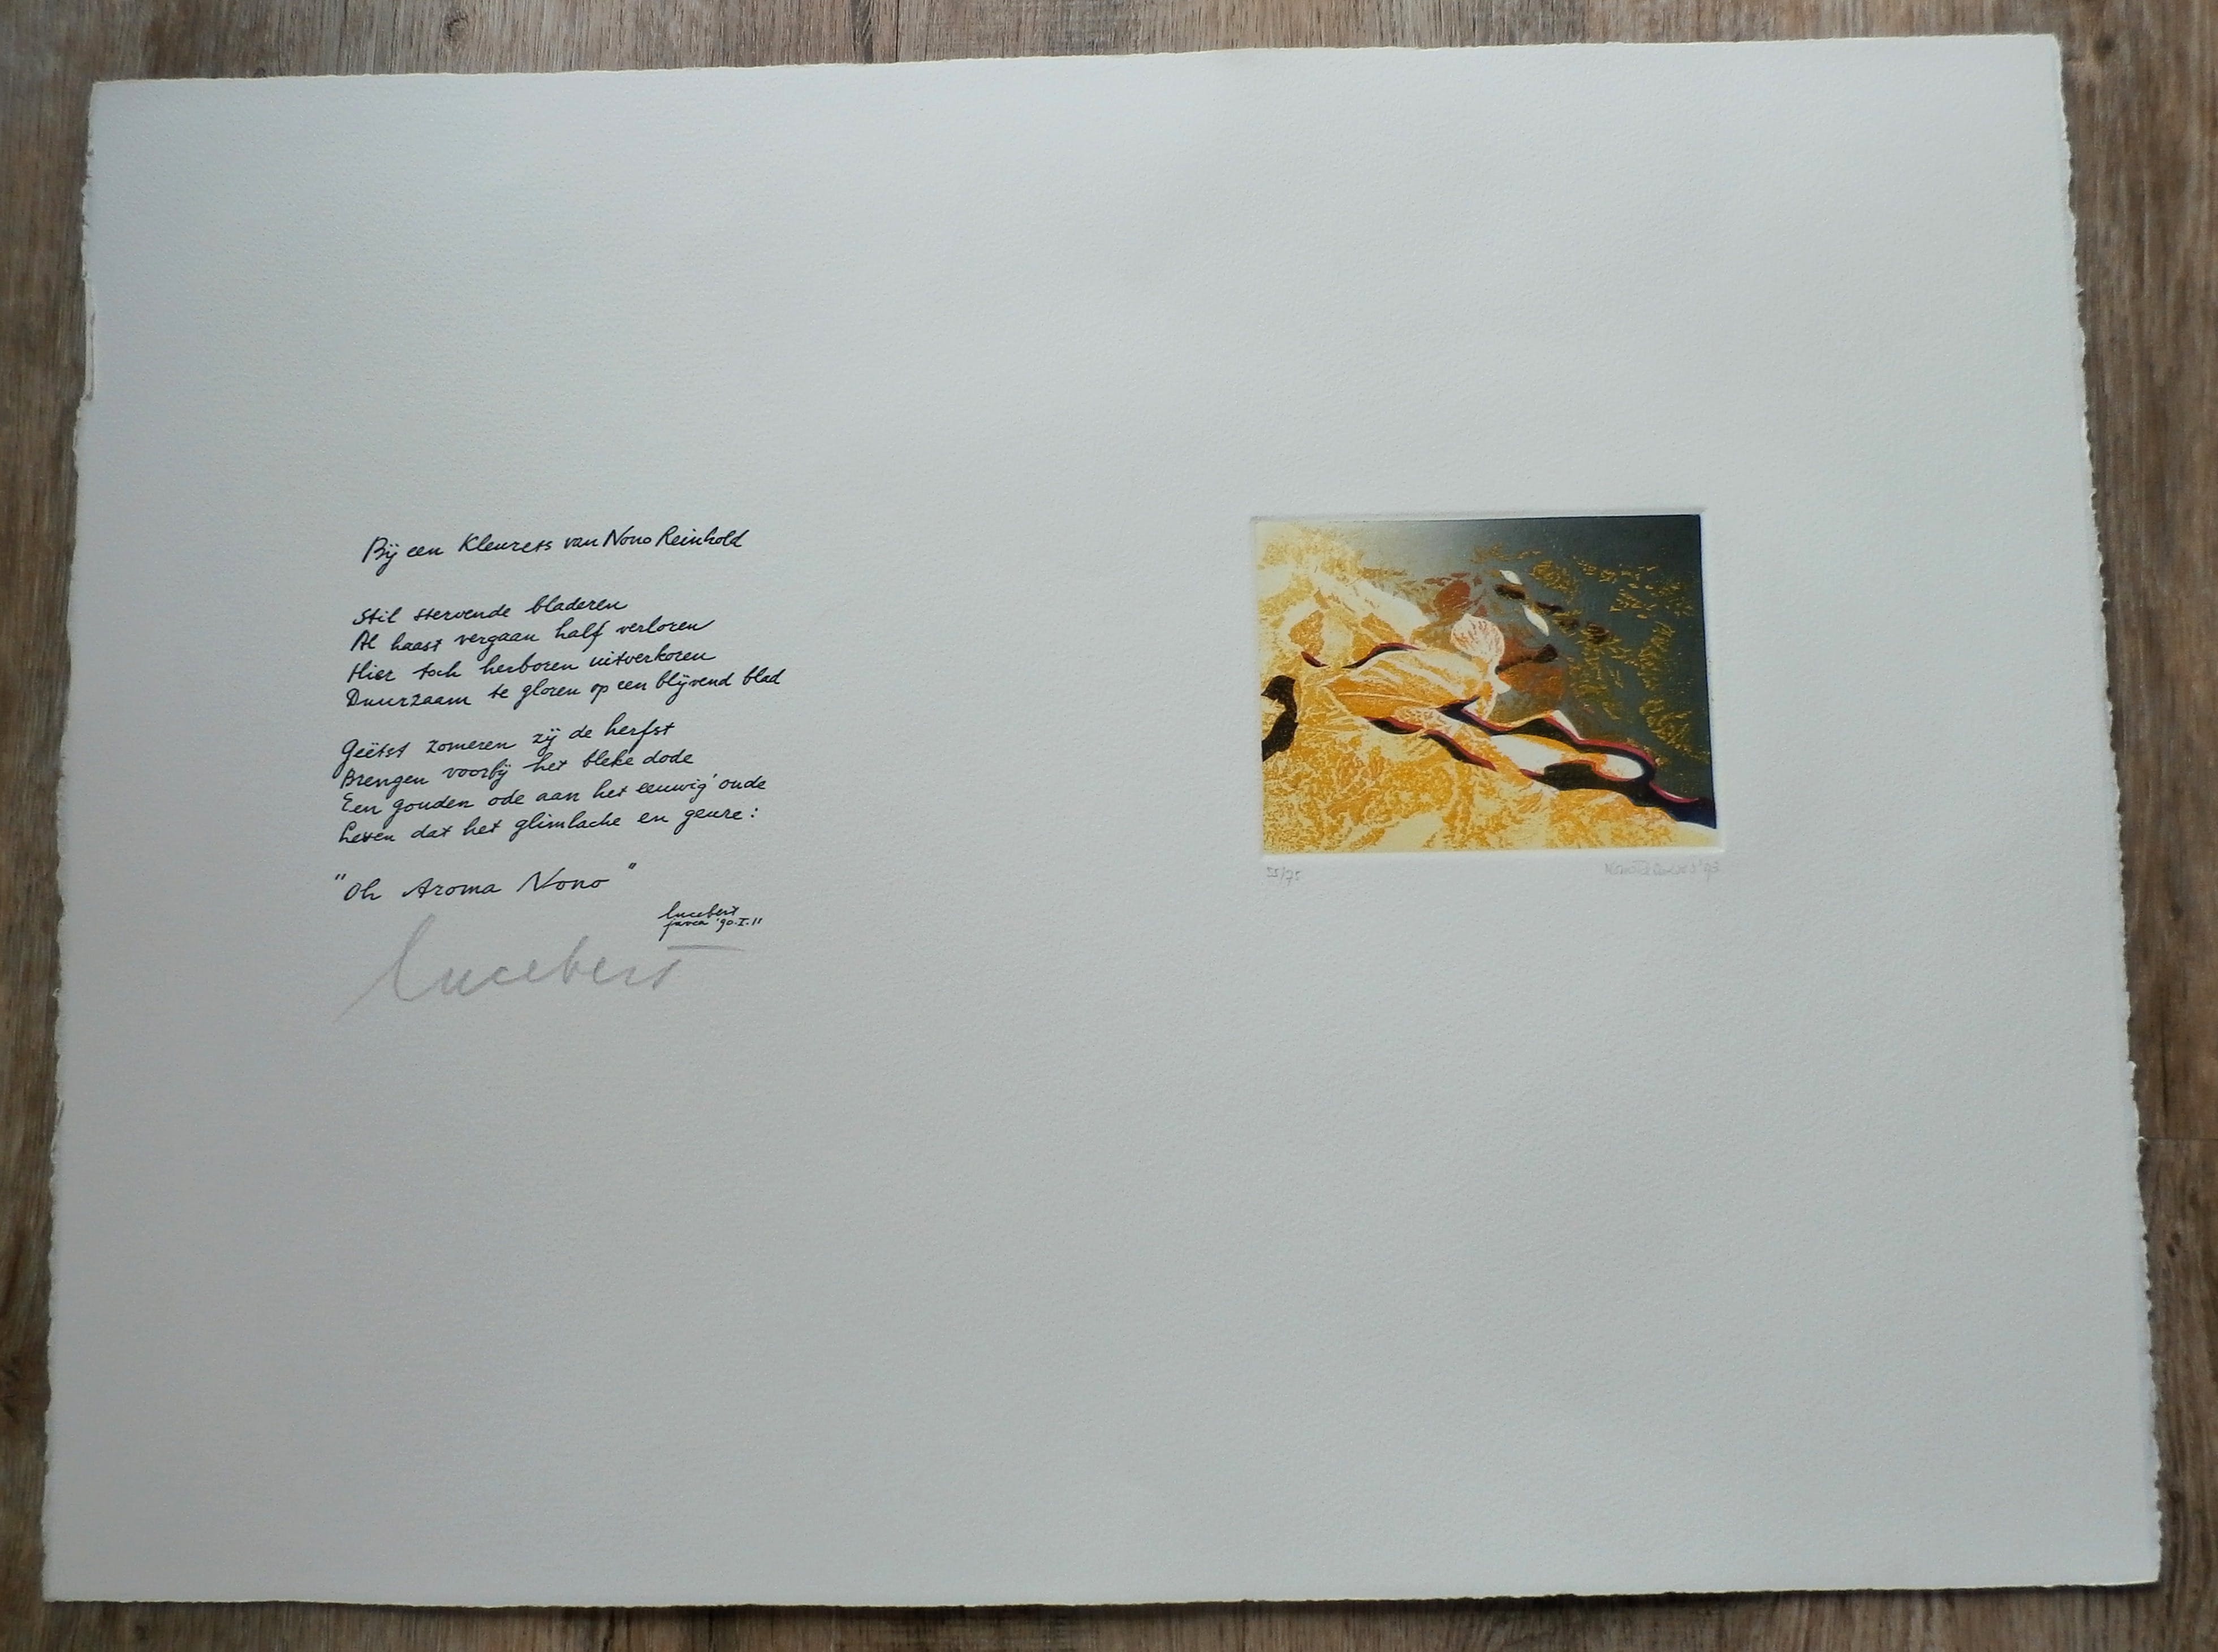 Bij een Kleurets van Nono Reinhold
Stil stervende bladeren
Al haast vergaan half verloren
Hier toch herboren uitverkoren
Duurzaam te gloren op een blijvend blad
Geëtst zomeren zij de herfst
Brengen voorbij het bleke dode
Een gouden ode aan het eeuwig oude
Leven dat het glimlache en geure:
"Oh Aroma Nono"
lucebert
javea '90.I.11
Lucebert
55/75